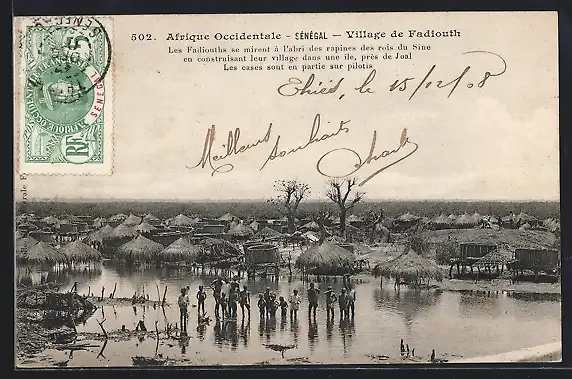 502. Afrique Occidentale - SÉNÉGAL - Village de Fadiouth
Les Fadiouths se mirent à l'abri des rapines des rois du Sine
en construisant leur village dans une île, près de Joal
Les cases sont en partie sur pilotis
Thiès, le 15/02/08
Meilleurs souhaits
Charles
SÉNÉGAL
5